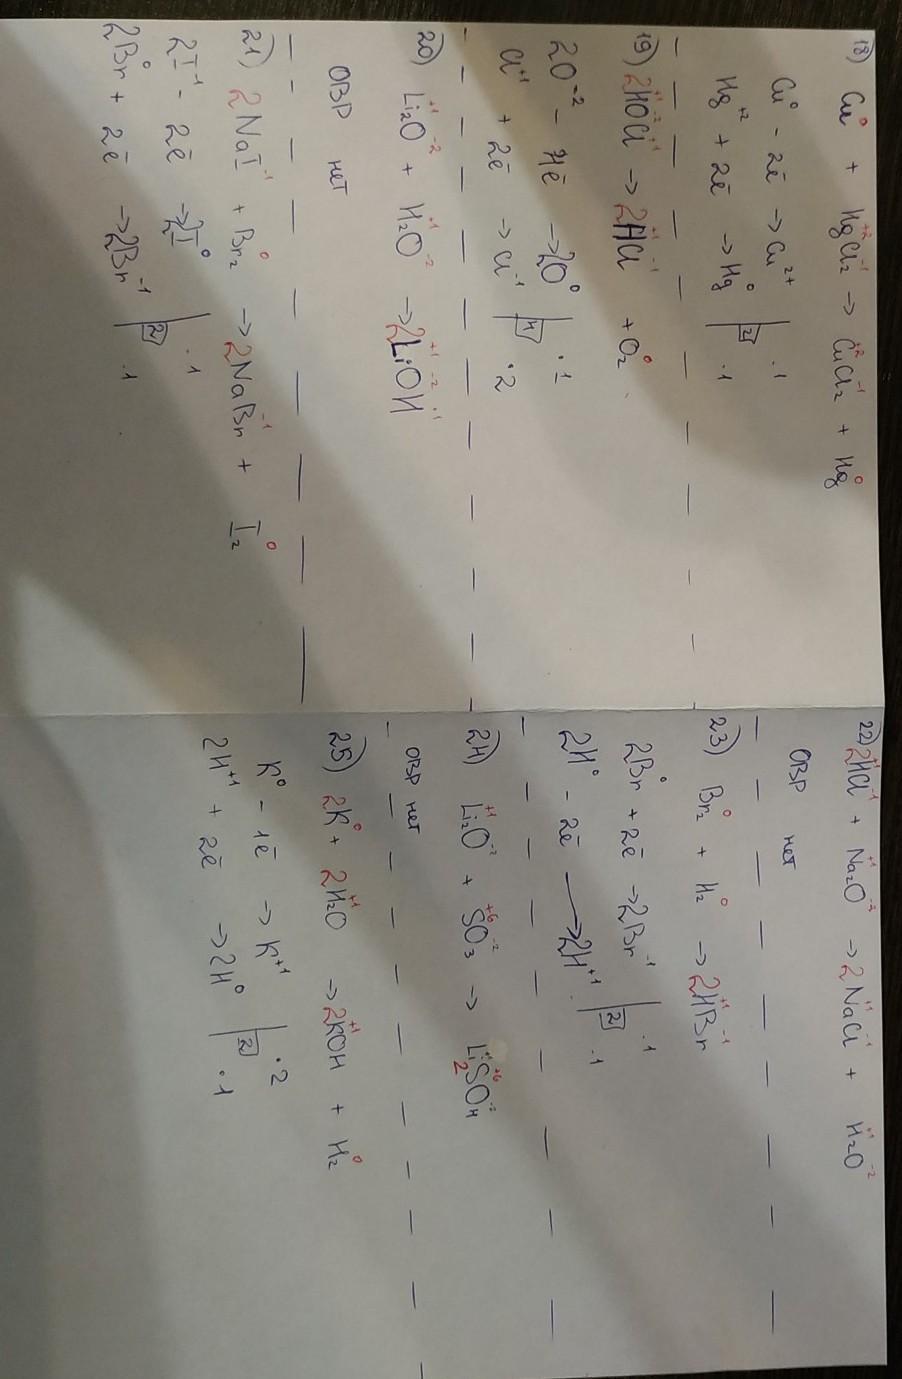 18) Cu⁰ + Hg⁺²Cl₂⁻¹ → Cu⁺²Cl₂⁻¹ + Hg⁰
Cu⁰ - 2ē → Cu²⁺ | 2 | ·1
Hg⁺² + 2ē → Hg⁰ ·1
19) 2H⁺¹O⁻²Cl⁺¹ → 2H⁺¹Cl⁻¹ + O₂⁰
2O⁻² - 4ē → 2O⁰ | 4 | ·1
Cl⁺¹ + 2ē → Cl⁻¹ ·2
20) Li₂⁺¹O⁻² + H₂⁺¹O⁻² → 2Li⁺¹O⁻²H⁺¹
ОВР нет
21) 2NaI⁻¹ + Br₂⁰ → 2NaBr⁻¹ + I₂⁰
2I⁻¹ - 2ē → 2I⁰ | 2 | ·1
2Br⁰ + 2ē → 2Br⁻¹ ·1
22) 2H⁺¹Cl⁻¹ + Na₂⁺¹O⁻² → 2Na⁺¹Cl⁻¹ + H₂⁺¹O⁻²
ОВР нет
23) Br₂⁰ + H₂⁰ → 2H⁺¹Br⁻¹
2Br⁰ + 2ē → 2Br⁻¹ | 2 | ·1
2H⁰ - 2ē → 2H⁺¹ ·1
24) Li₂⁺¹O⁻² + S⁺⁶O₃⁻² → Li₂⁺¹S⁺⁶O₄⁻²
ОВР нет
25) 2K⁰ + 2H₂⁺¹O → 2K⁺¹OH + H₂⁰
K⁰ - 1ē → K⁺¹ | 2 | ·2
2H⁺¹ + 2ē → 2H⁰ ·1